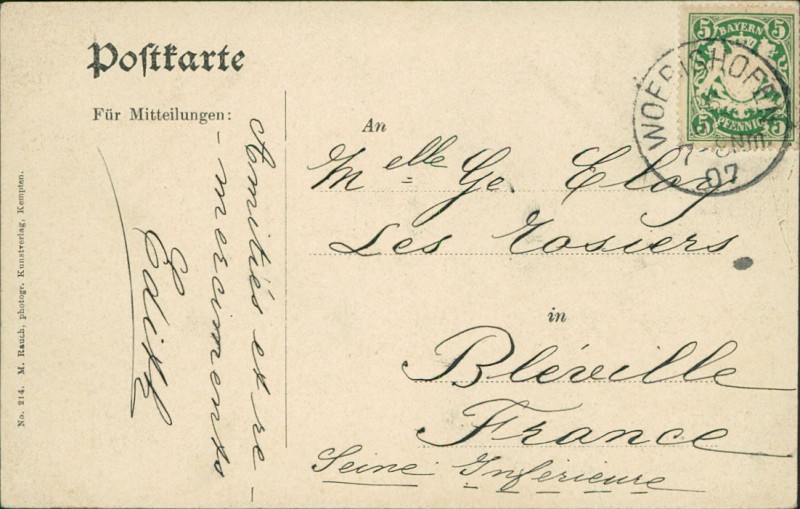 Postkarte
Für Mitteilungen:
Amitiés et re-
-merciments
Edith
An
Melle Ge. Eloy
Les Rosiers
in
Bléville
France
Seine Inférieure
5 BAYERN 5
5 PFENNIG 5
WOERISHOFEN
07
No. 214. M. Rauch, photogr. Kunstverlag, Kempten.